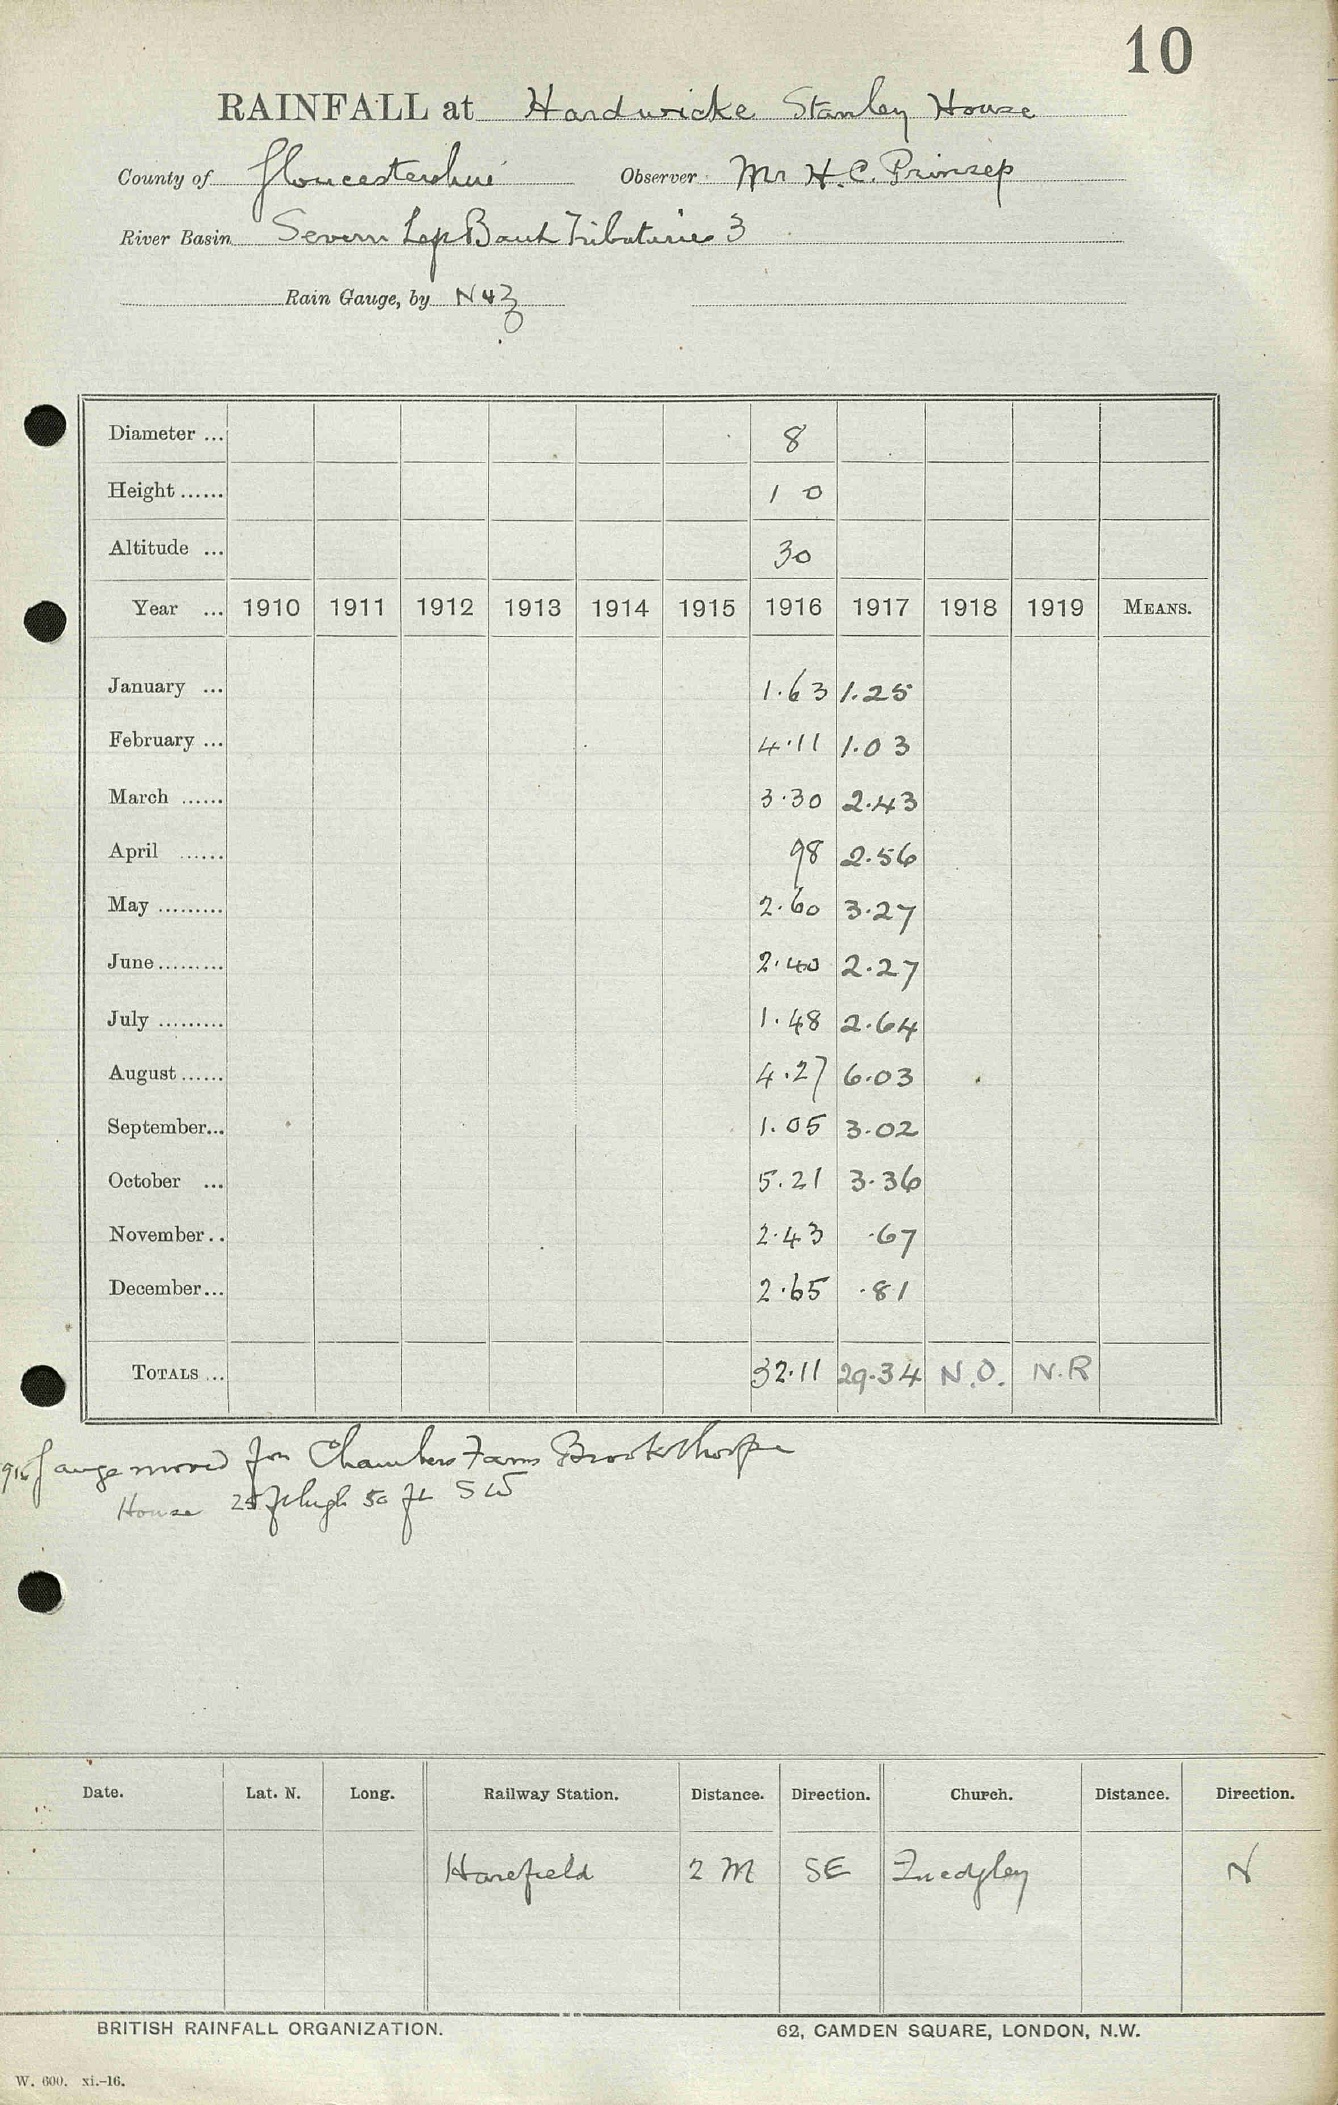 10
RAINFALL at Hardwicke Stanley House
County of Gloucestershire Observer Mr H.C. Prinsep
River Basin Severn Left Bank Tributaries 3
Rain Gauge, by N & Z
Diameter ... 8
Height ...... 1 0
Altitude ... 30
Year ... 1910 1911 1912 1913 1914 1915 1916 1917 1918 1919 MEANS.
January ... 1.63 1.25
February ... 4.11 1.03
March ...... 3.30 2.43
April ...... 98 2.56
May ......... 2.60 3.27
June ......... 2.40 2.27
July ......... 1.48 2.64
August ...... 4.27 6.03
September... 1.05 3.02
October ... 5.21 3.36
November.. 2.43 .67
December... 2.65 .81
TOTALS ... 32.11 29.34 N.O. N.R
916 Gauge moved from Chambers Farm Brookthorpe
House 25 ft high 50 ft SW
Date. Lat. N. Long. Railway Station. Distance. Direction. Church. Distance. Direction.
Harefield 2 M SE Quedgley N
BRITISH RAINFALL ORGANIZATION. 62, CAMDEN SQUARE, LONDON, N.W.
W. 600. xi.-16.